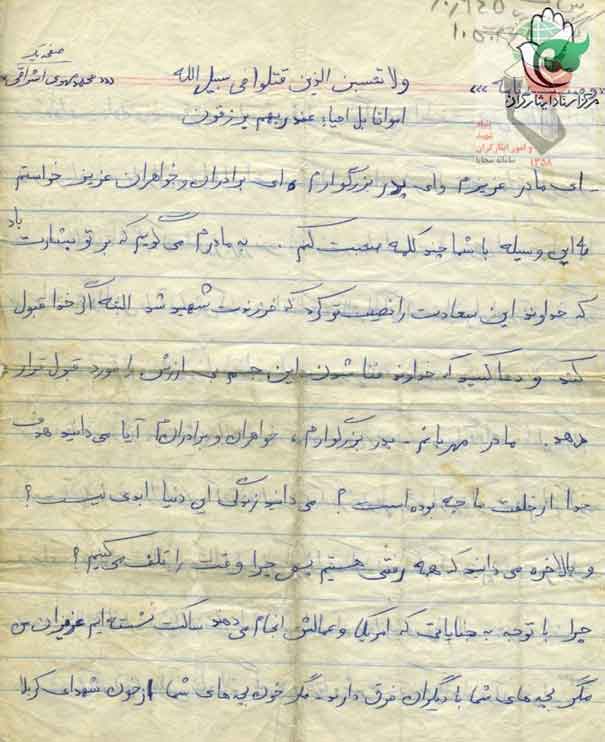 صفحه یک
ولا تحسبن الذین قتلوا فی سبیل الله
«« محمد مهدی اشراقی »»
امواتا بل احیاء عند ربهم یرزقون
مرکز اسناد ایثارگران
بنیاد
شهید
و امور ایثارگران
سامانه سجایا
۱۳۵۸
ـ ای مادر عزیزم وای پدر بزرگوارم وای برادران و خواهران عزیز خواستم
به این وسیله با شما چند کلمه صحبت کنم . به مادرم می گویم که بر تو بشارت باد
که خداوند این سعادت را نصیب تو کرد که فرزندت شهید شد البته اگر خدا قبول
کند و دعا کنید که خداوند این جسم بی ارزش را مورد قبول قرار
دهد . مادر مهربانم ـ پدر بزرگوارم ، خواهران و برادران آیا می دانید هدف
خدا از خلقت ما چه بوده است ؟ می دانید زندگی این دنیا ابدی نیست ؟
و بالاخره می دانید که همه رفتنی هستیم پس چرا وقت را تلف می کنیم ؟
چرا با توجه به جنایاتی که امریکا و عمالش انجام می دهند ساکت نشسته ایم عزیزان من
مگر بچه های شما با دیگران فرق دارند ـ مگر خون بچه های شما از خون شهدای کربلا